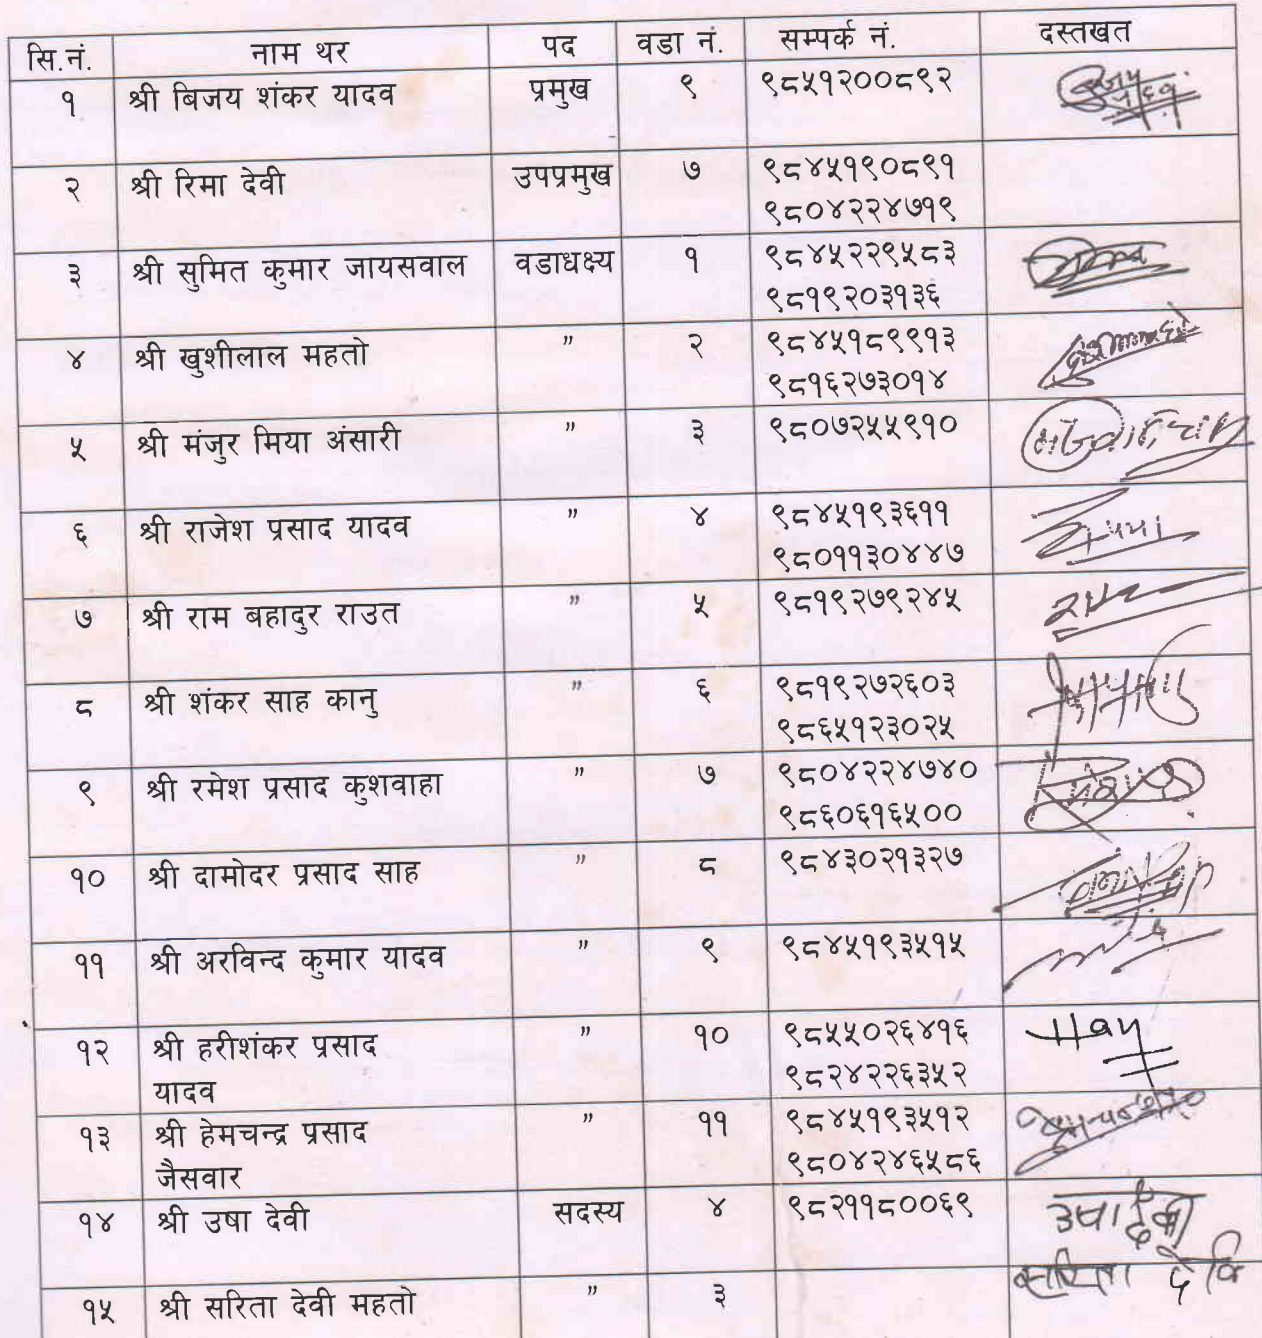 सि.नं. नाम थर पद वडा नं. सम्पर्क नं. दस्तखत
१ श्री बिजय शंकर यादव प्रमुख ९ ९८५१२००८९२
२ श्री रिमा देवी उपप्रमुख ७ ९८४५१९०८९१
९८०४२२४७१९
३ श्री सुमित कुमार जायसवाल वडाधक्ष्य १ ९८४५२२९५८३
९८१९२०३१३६
४ श्री खुशीलाल महतो " २ ९८४५१८९९१३
९८१६२७३०१४
५ श्री मंजुर मिया अंसारी " ३ ९८०७२५५९१०
६ श्री राजेश प्रसाद यादव " ४ ९८४५१९३६११
९८०११३०४४७
७ श्री राम बहादुर राउत " ५ ९८१९२७९२४५
८ श्री शंकर साह कानु " ६ ९८१९२७२६०३
९८६५१२३०२५
९ श्री रमेश प्रसाद कुशवाहा " ७ ९८०४२२४७४०
९८६०६१६५००
१० श्री दामोदर प्रसाद साह " ८ ९८४३०२१३२७
११ श्री अरविन्द कुमार यादव " ९ ९८४५१९३५१५
१२ श्री हरीशंकर प्रसाद " १० ९८५५०२६४१६
यादव ९८२४२२६३५२
१३ श्री हेमचन्द्र प्रसाद " ११ ९८४५१९३५१२
जैसवार ९८०४२४६५८६
१४ श्री उषा देवी सदस्य ४ ९८२११८००६९ उषा देवी
१५ श्री सरिता देवी महतो " ३ सरिता देवि